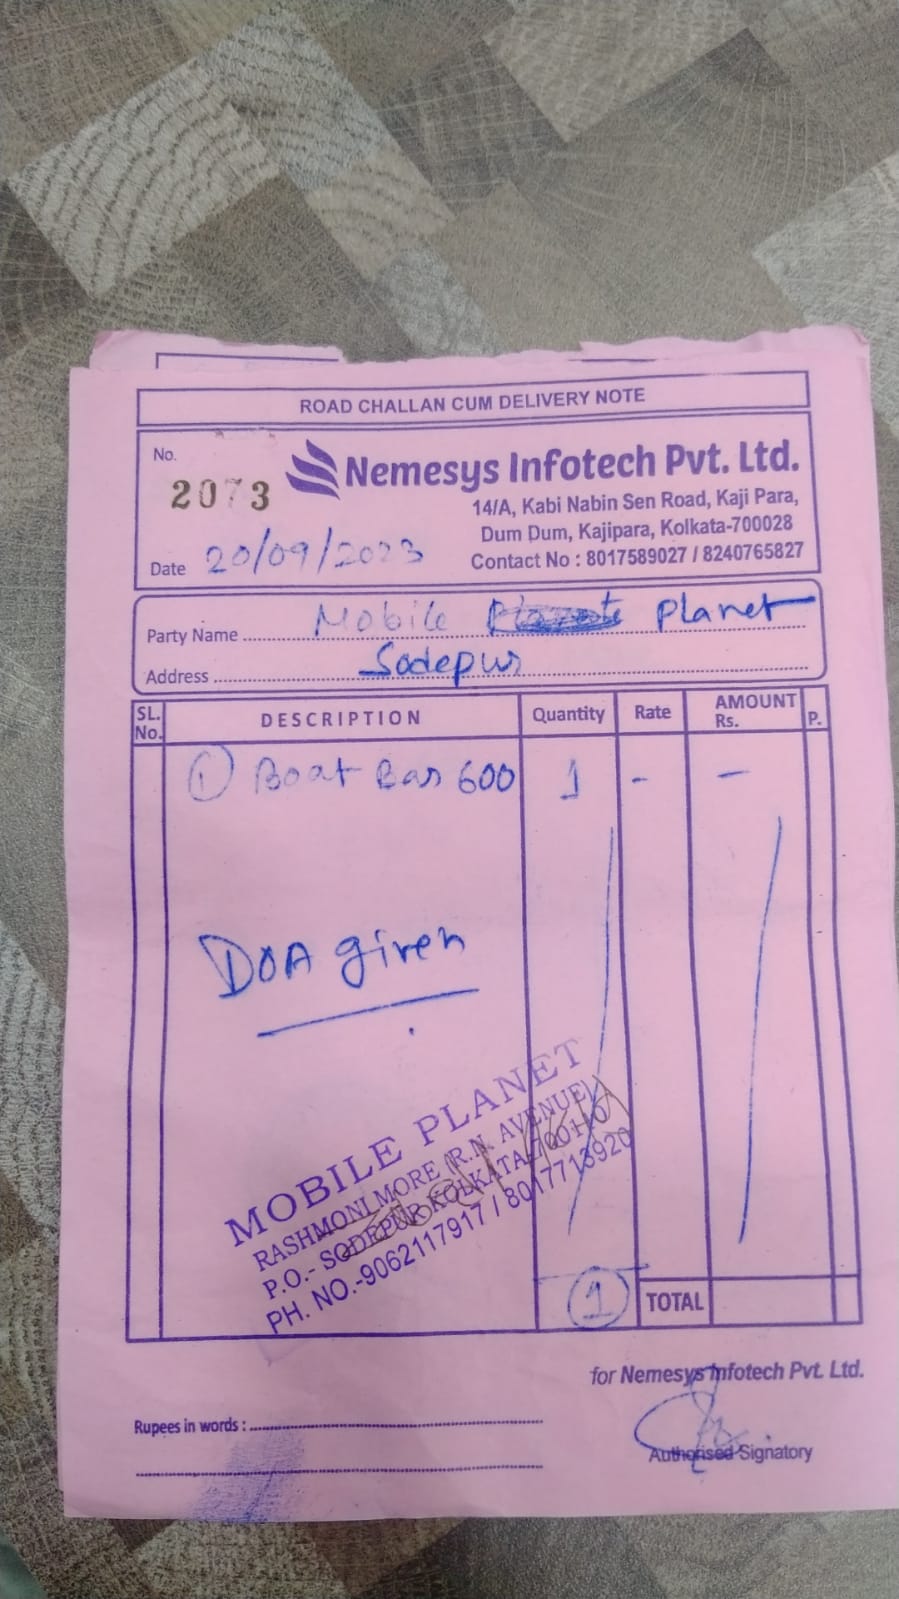 ROAD CHALLAN CUM DELIVERY NOTE
No.
2073
Nemesys Infotech Pvt. Ltd.
14/A, Kabi Nabin Sen Road, Kaji Para,
Dum Dum, Kajipara, Kolkata-700028
Contact No : 8017589027 / 8240765827
Date 20/09/2023
Party Name Mobile Planet
Address Sodepur
SL. No. DESCRIPTION Quantity Rate AMOUNT Rs. P.
① Boat Bar 600 1 - -
DOA given
MOBILE PLANET
RASHMONI MORE (R.N. AVENUE)
P.O.- SODEPUR KOLKATA-700110
PH. NO.-9062117917 / 8017713920
1 TOTAL
for Nemesys Infotech Pvt. Ltd.
Rupees in words :
Authorised Signatory